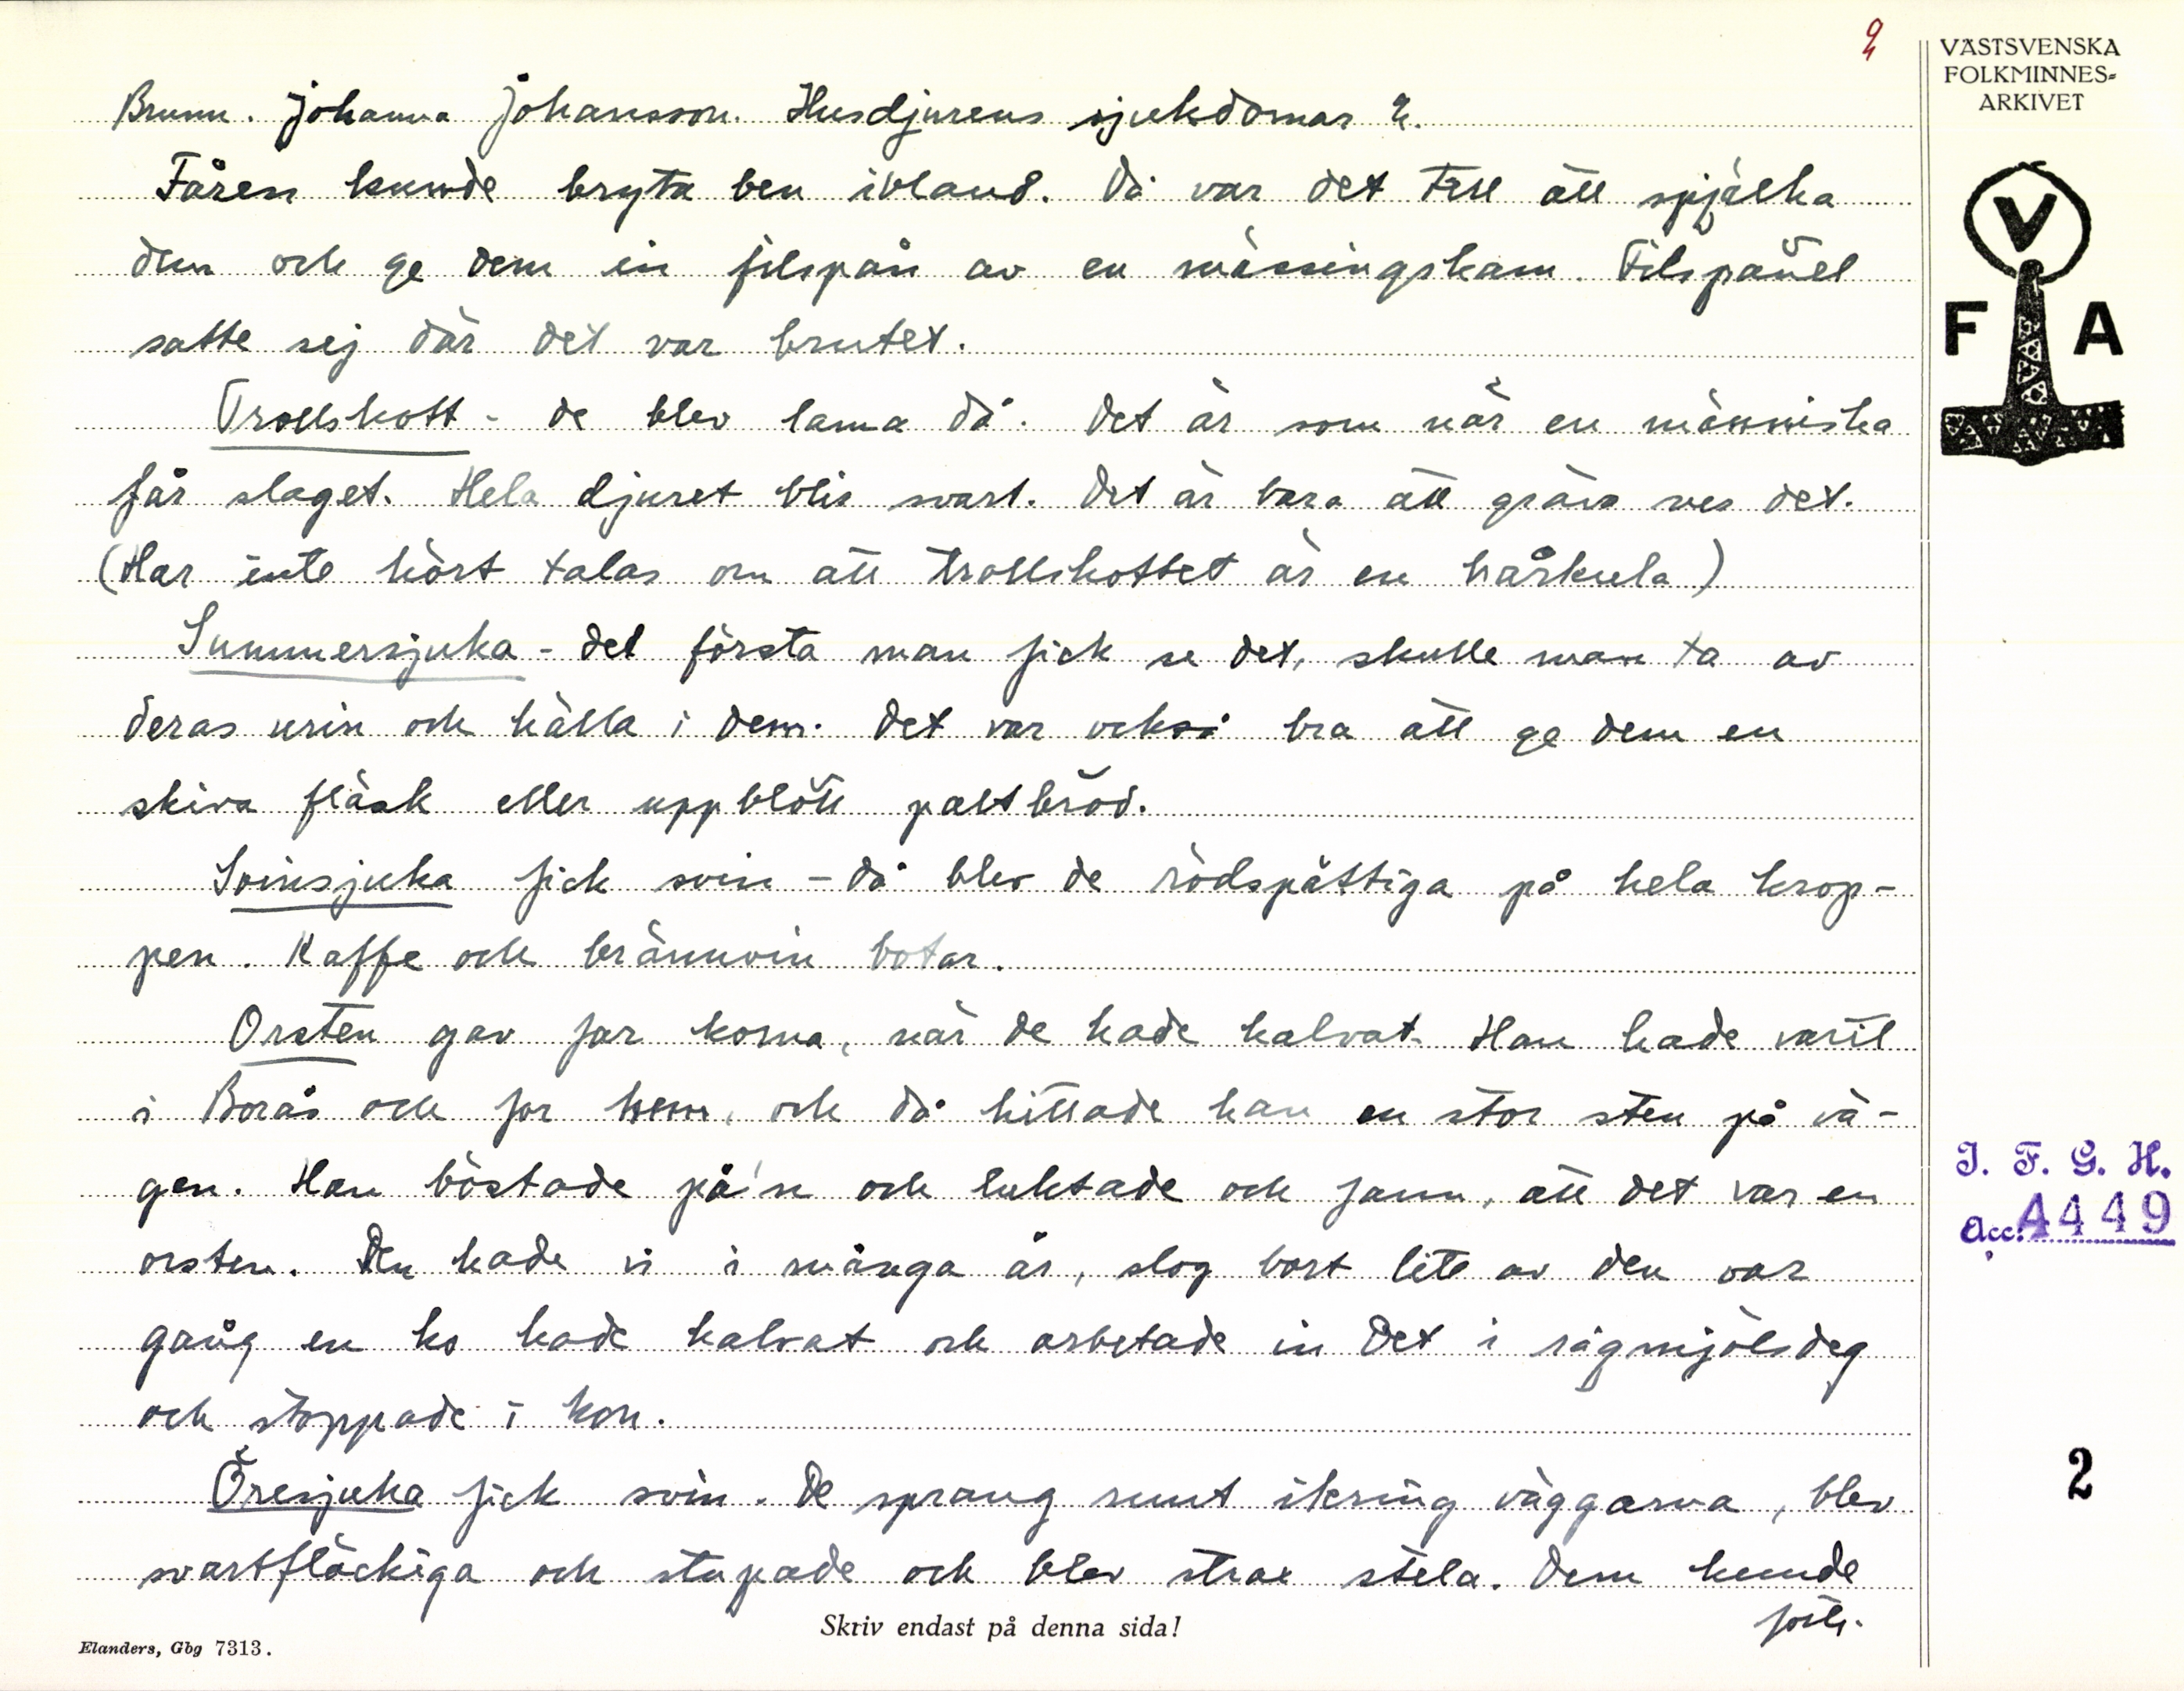 2
VÄSTSVENSKA
FOLKMINNES-
ARKIVET
V
F A
Brunn. Johanna Johansson. Husdjurens sjukdomar 2.
Fåren kunde bryta ben ibland. Då var det till att spjälka
dem och ge dem in filspån av en mässingskam. Filspånet
satte sej där det var brutet.
Trollskott - de blev lama då. Det är som när en människa
får slaget. Hela djuret blir svart. Det är bara att gräva ner det.
(Har inte hört talas om att trollskottet är en hårkula)
Summersjuka - det första man fick se det, skulle man ta av
deras urin och hälla i dem. Det var också bra att ge dem en
skiva fläsk eller uppblött paltbröd.
Svinsjuka fick svin - då blev de rödspättiga på hela krop-
pen. Kaffe och brännvin botar.
Orsten gav far korna, när de hade kalvat. Han hade varit
i Borås och for hem, och då hittade han en stor sten på vä-
gen. Han böstade på'n och luktade och fann, att det var en
orsten. Den hade vi i många år, slog bort lite av den var
gång en ko hade kalvat och arbetade in det i rågmjölsdeg
och stoppade i kon.
Öresjuka fick svin. De sprang runt ikring väggarna, blev
svartfläckiga och stupade och blev strax stela. Dem kunde
forts.
I. F. G. H.
Acc: 4449
2
Skriv endast på denna sida!
Elanders, Gbg 7313.